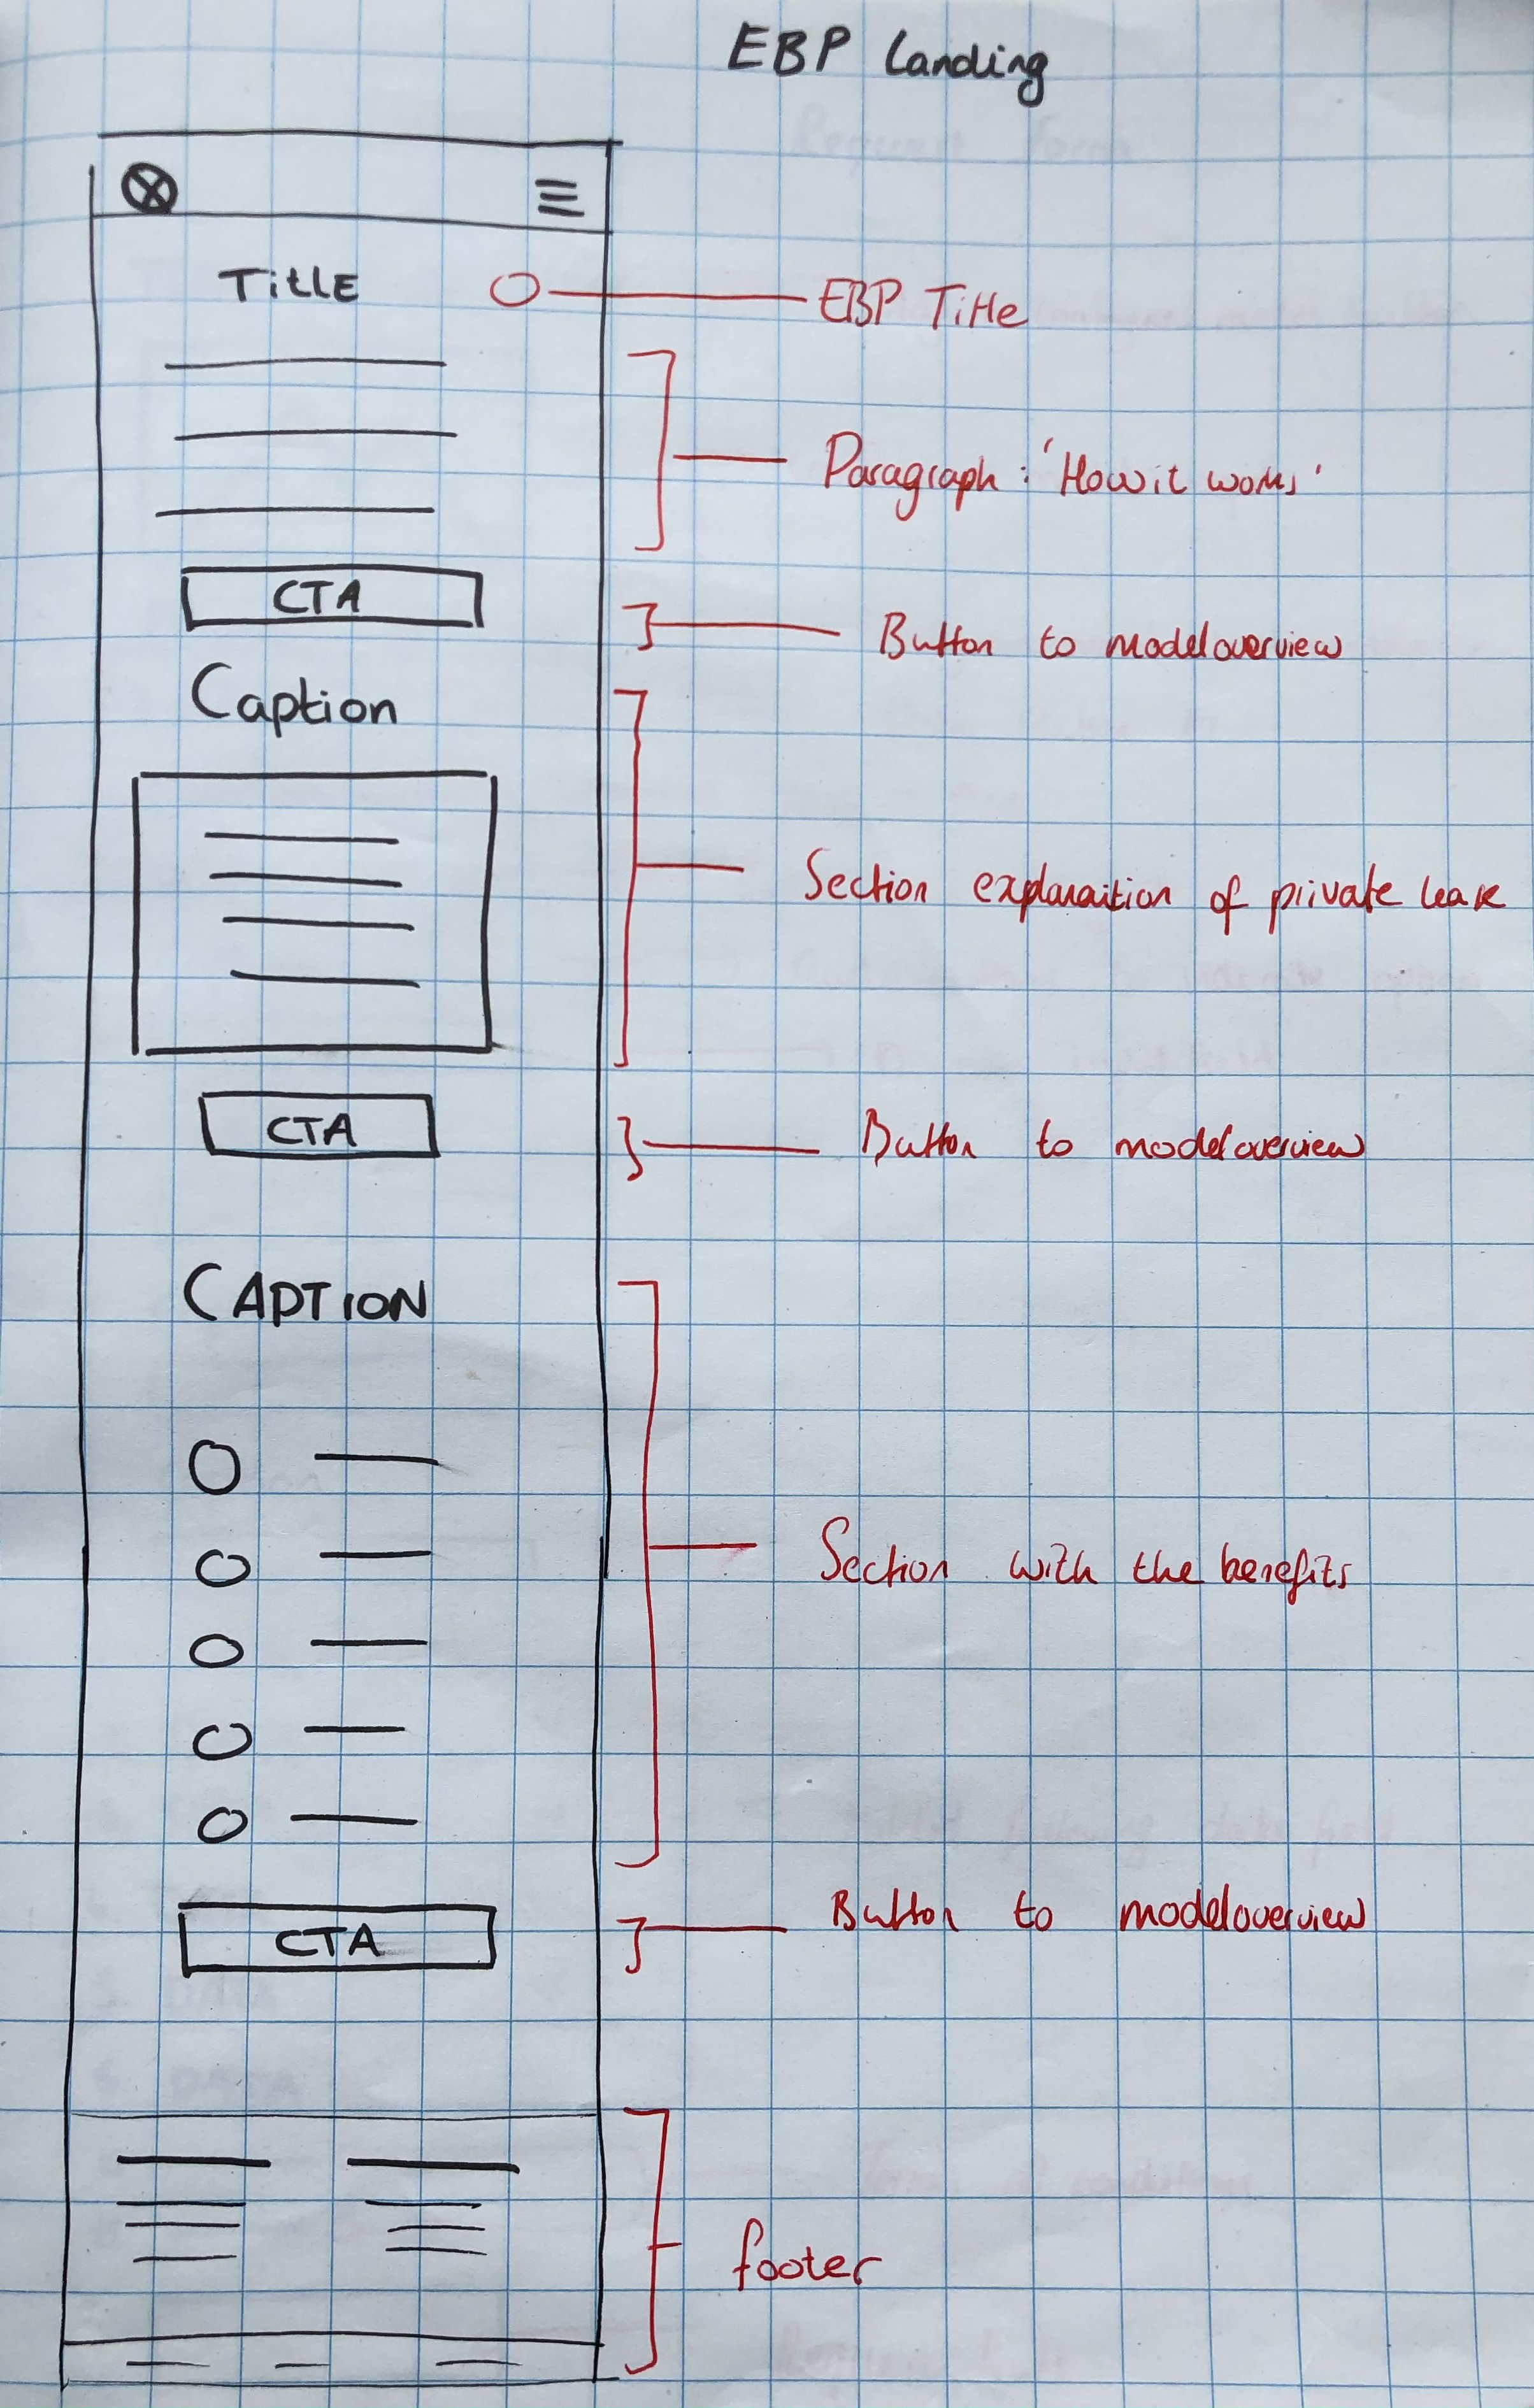 EBP Landing
Title
EBP Title
Paragraph: 'How it works'
CTA
Button to modeloverview
Caption
Section explanaition of private lease
CTA
Button to modeloverview
CAPTION
Section with the benefits
CTA
Button to modeloverview
footer